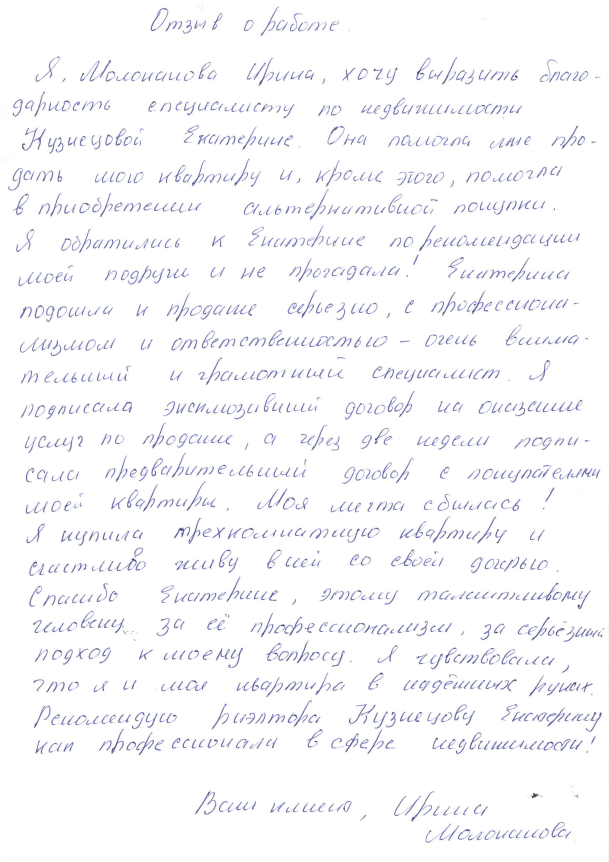 Отзыв о работе.
Я, Молоканова Ирина, хочу выразить благо-
дарность специалисту по недвижимости
Кузнецовой Екатерине. Она помогла мне про-
дать мою квартиру и, кроме этого, помогла
в приобретении альтернативной покупки.
Я обратилась к Екатерине по рекомендации
моей подруги и не прогадала! Екатерина
подошла к продаже серьезно, с профессиона-
лизмом и ответственностью – очень внима-
тельный и грамотный специалист. Я
подписала эксклюзивный договор на оказание
услуг по продаже, а через две недели подпи-
сала предварительный договор с покупателями
моей квартиры. Моя мечта сбылась!
Я купила трехкомнатную квартиру и
счастливо живу в ней со своей дочерью.
Спасибо Екатерине, этому талантливому
человеку за её профессионализм, за серьёзный
подход к моему вопросу. Я чувствовала,
что я и моя квартира в надёжных руках.
Рекомендую риэлтора Кузнецову Екатерину
как профессионала в сфере недвижимости!
Ваш клиент, Ирина
Молоканова.